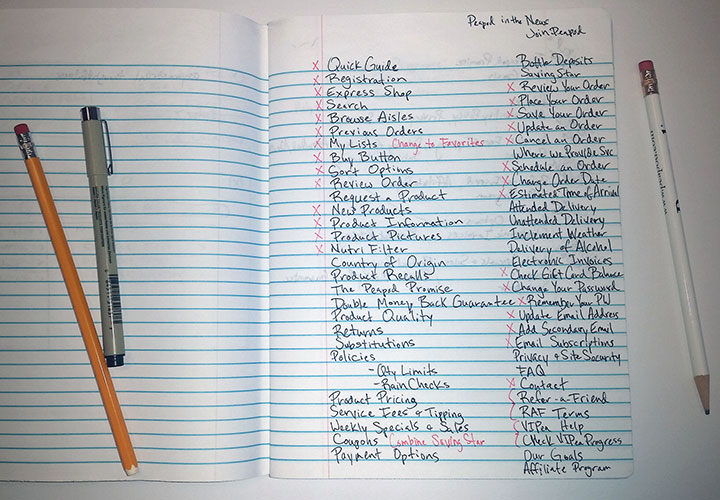 Peapod in the News
Join Peapod
X Quick Guide
X Registration
X Express Shop
X Search
X Browse Aisles
X Previous Orders
X My Lists Change to Favorites
X Buy Button
X Sort Options
X Review Order
Request a Product
X New Products
X Product Information
X Product Pictures
X Nutri Filter
Country of Origin
Product Recalls
The Peapod Promise
Double Money Back Guarantee
Product Quality
Returns
Substitutions
Policies
- Qty Limits
- Rain Checks
Product Pricing
Service Fees & Tipping
Weekly Specials & Sales
Coupons Combine Saving Star
Payment Options
Bottle Deposits
Saving Star
X Review Your Order
X Place Your Order
X Save Your Order
X Update an Order
X Cancel an Order
Where we Provide Svc
X Schedule an Order
X Change Order Date
X Estimated Time of Arrival
Attended Delivery
Unattended Delivery
Inclement Weather
Delivery of Alcohol
Electronic Invoices
X Check Gift Card Balance
X Change Your Password
X Remember Your PW
X Update Email Address
X Add Secondary Email
X Email Subscriptions
Privacy & Site Security
FAQ
X Contact
Refer-a-Friend
RAF Terms
VIPea Help
Check VIPea Progress
Our Goals
Affiliate Program